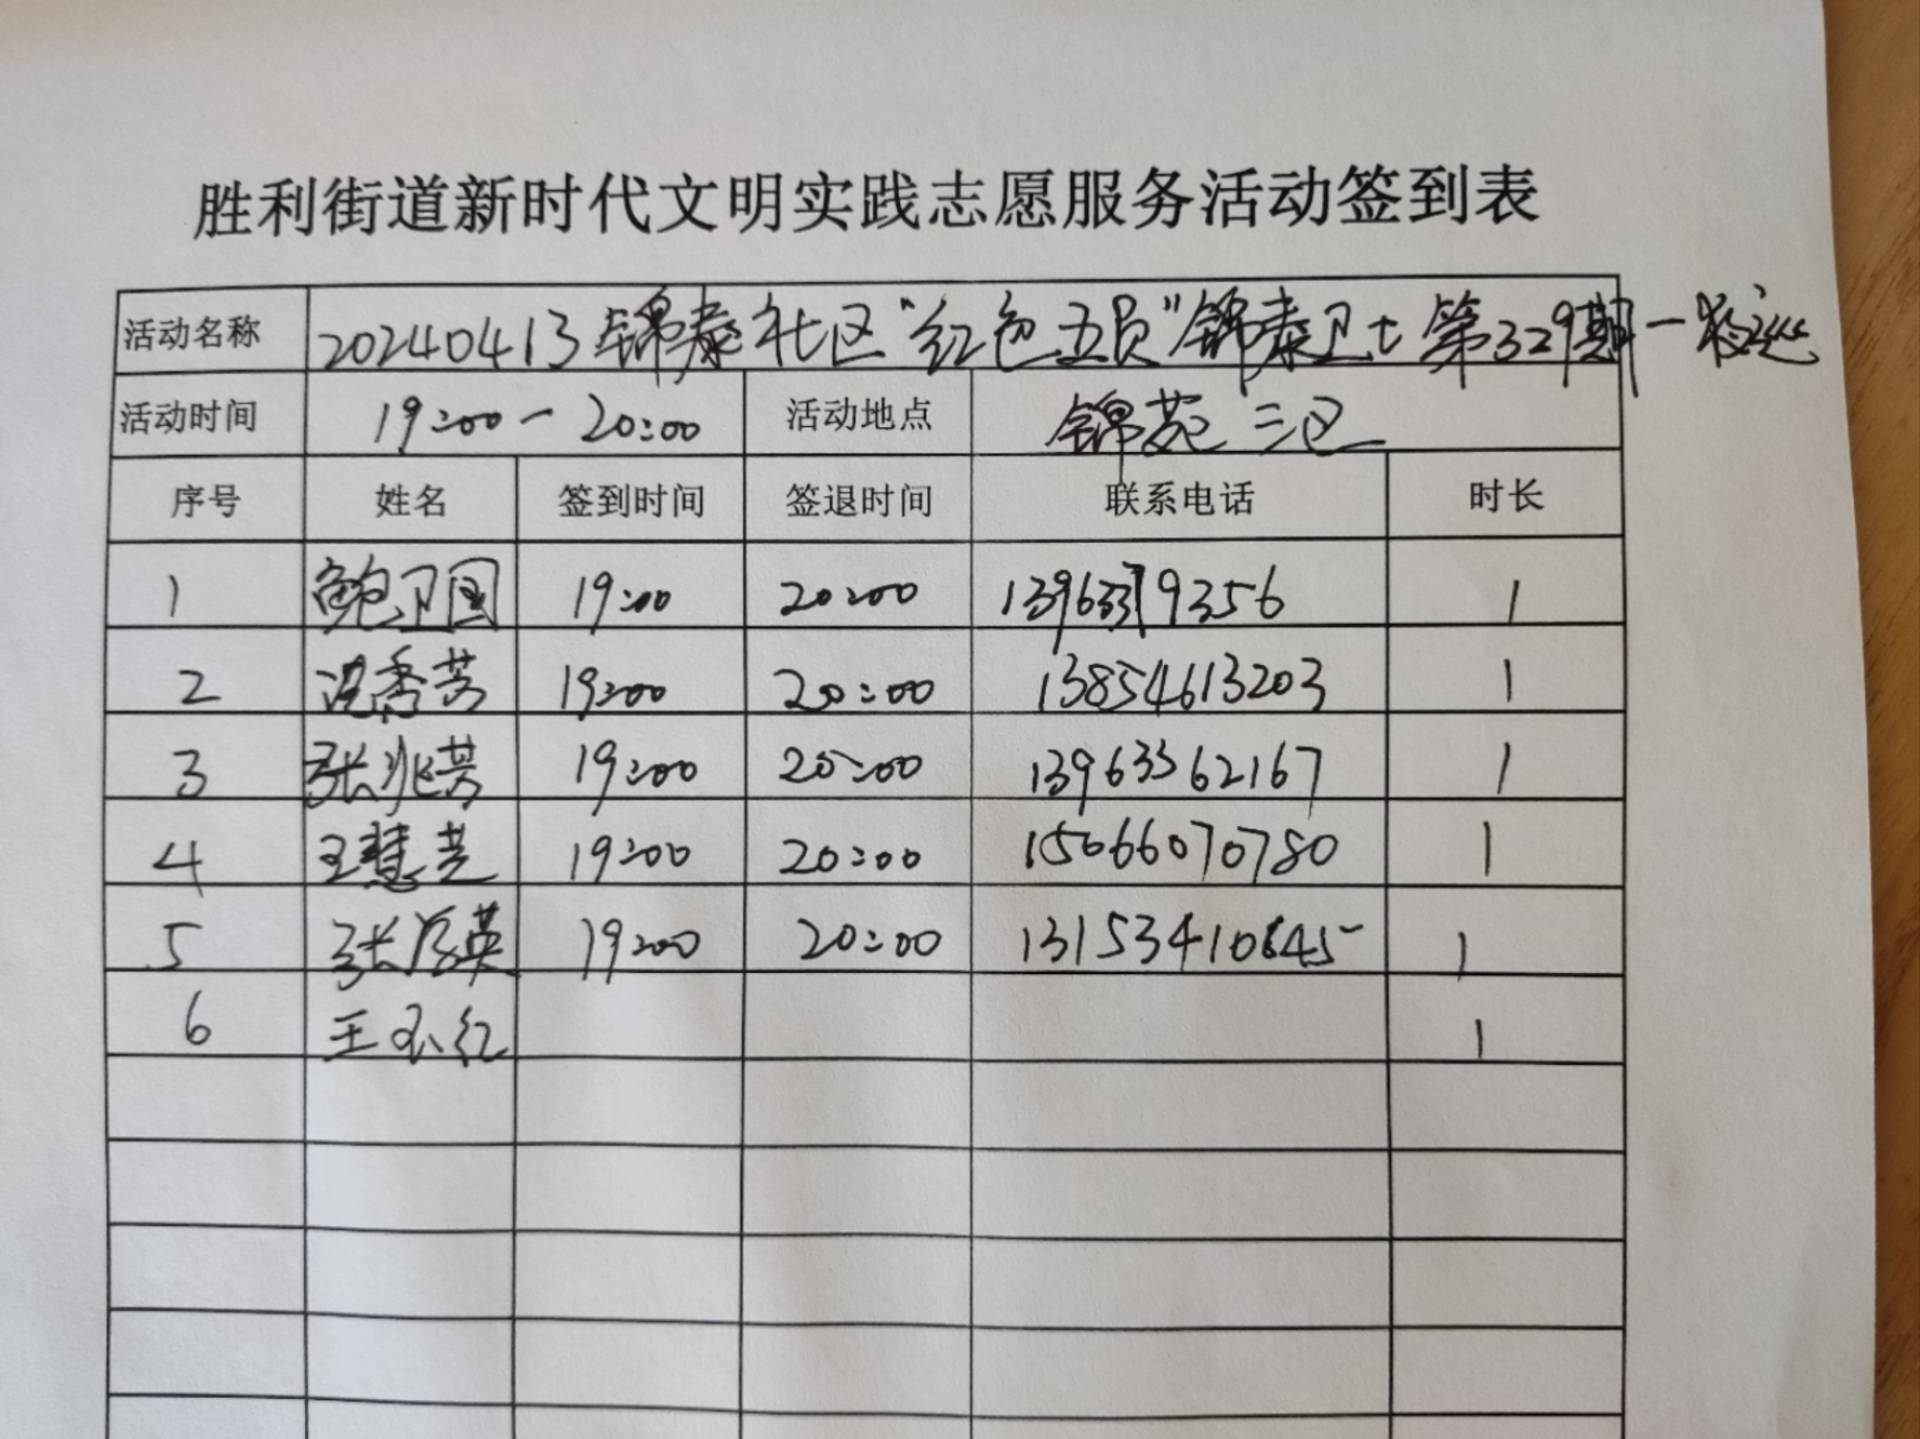 胜利街道新时代文明实践志愿服务活动签到表
活动名称 20240413锦泰社区“红色五员”锦泰卫士第329期一夜巡
活动时间 19:00-20:00 活动地点 锦苑三区
序号 姓名 签到时间 签退时间 联系电话 时长
1 鲍卫国 19:00 20:00 9356 1
2 香芳 19:00 20:00 13854613203 1
3 张兆芳 19:00 20:00 13963362167 1
4 王慧芝 19:00 20:00 15066070780 1
5 张 英 19:00 20:00 1
6 王玉红 1